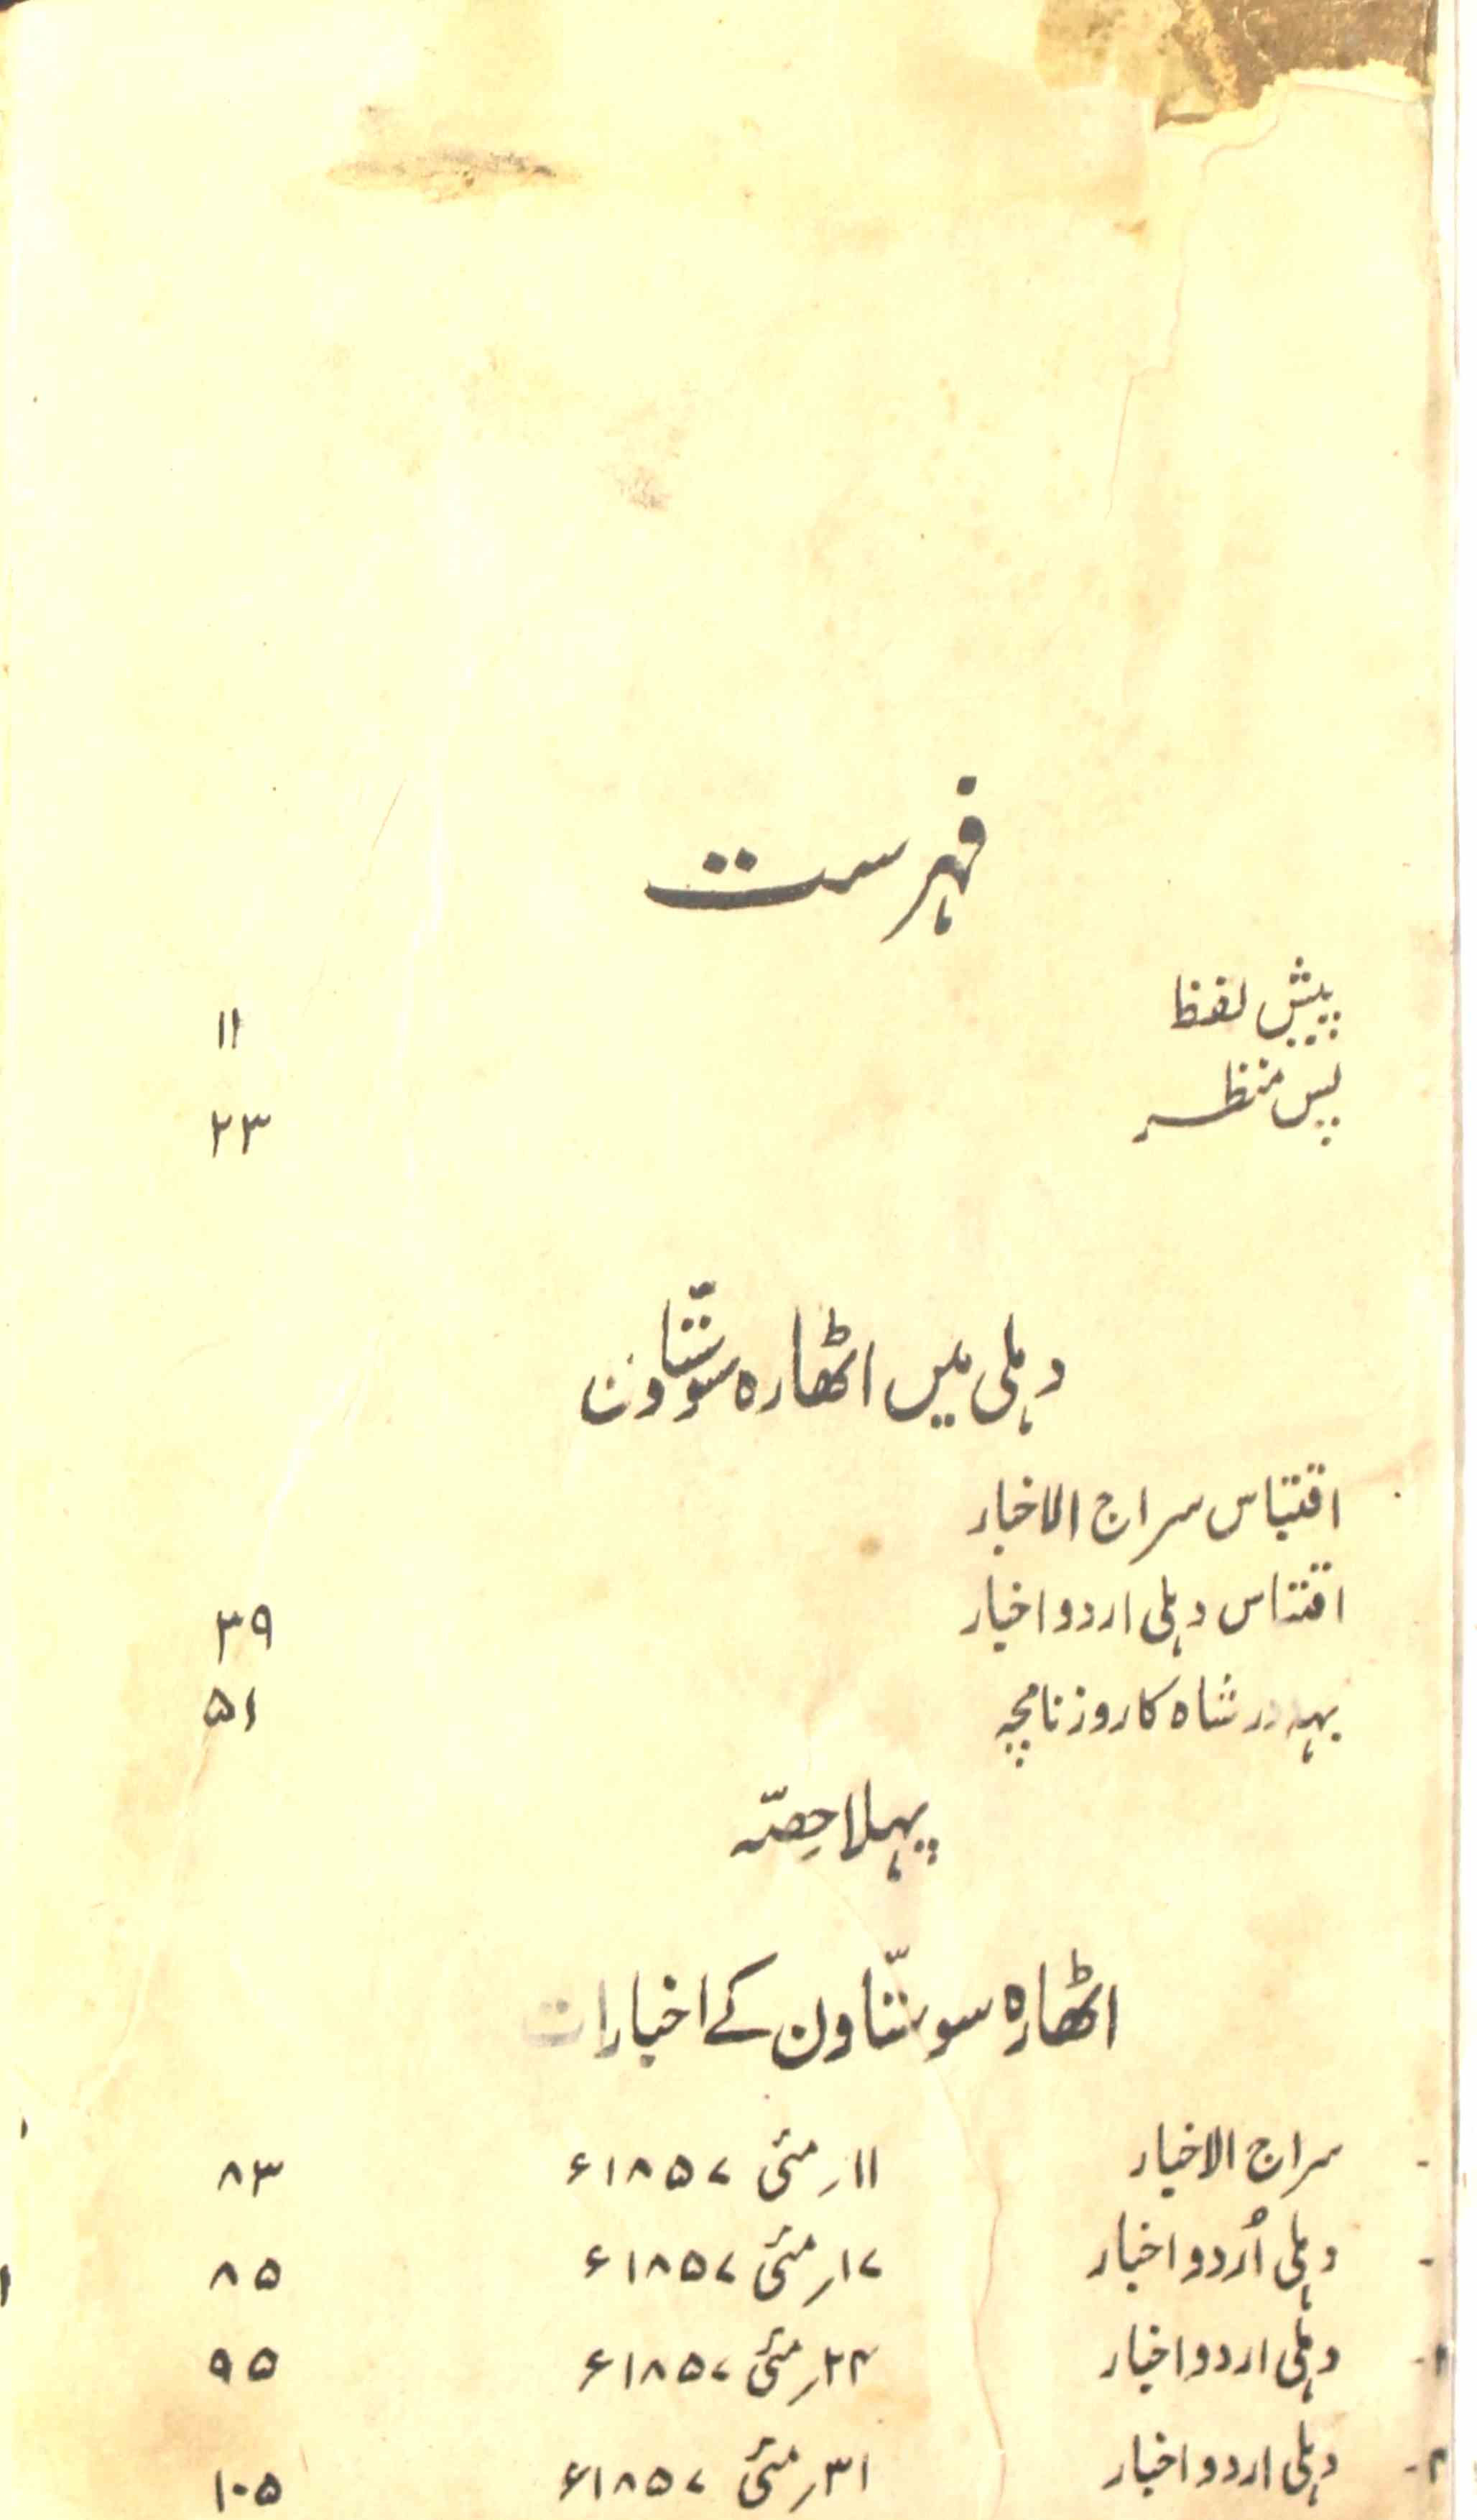 فہرست
پیش لفظ ۱۱
پس منظر ۲۳
دہلی میں اٹھارہ سو ستّاون
اقتباس سراج الاخبار
اقتباس دہلی اردو اخبار ۳۹
بہادر شاہ کا روزنامچہ ۵۱
پہلا حِصّہ
اٹھارہ سو ستّاون کے اخبارات
سراج الاخبار ۱۱؍مئی ۱۸۵۷ء ۸۳
دہلی اُردو اخبار ۱۷؍مئی ۱۸۵۷ء ۸۵
دہلی اردو اخبار ۲۴؍مئی ۱۸۵۷ء ۹۵
دہلی اردو اخبار ۳۱؍مئی ۱۸۵۷ء ۱۰۵